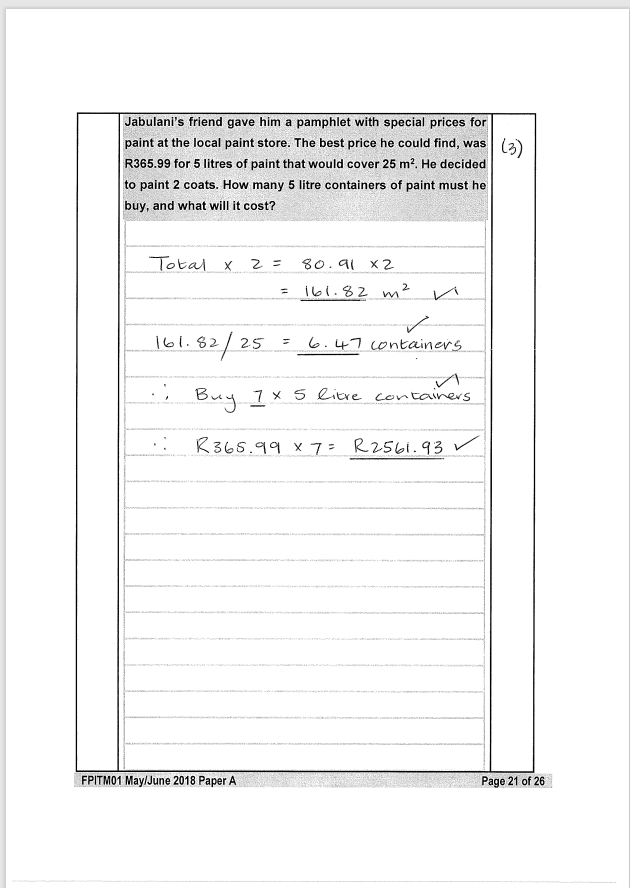 Jabulani's friend gave him a pamphlet with special prices for
paint at the local paint store. The best price he could find, was
R365.99 for 5 litres of paint that would cover 25 m². He decided
to paint 2 coats. How many 5 litre containers of paint must he
buy, and what will it cost?
(3)
Total x 2 = 80.91 x2
= 161.82 m² ✓
161.82/25 = 6.47 containers ✓
∴ Buy 7 x 5 litre containers ✓
∵ R365.99 x 7 = R2561.93 ✓
FPITM01 May/June 2018 Paper A
Page 21 of 26